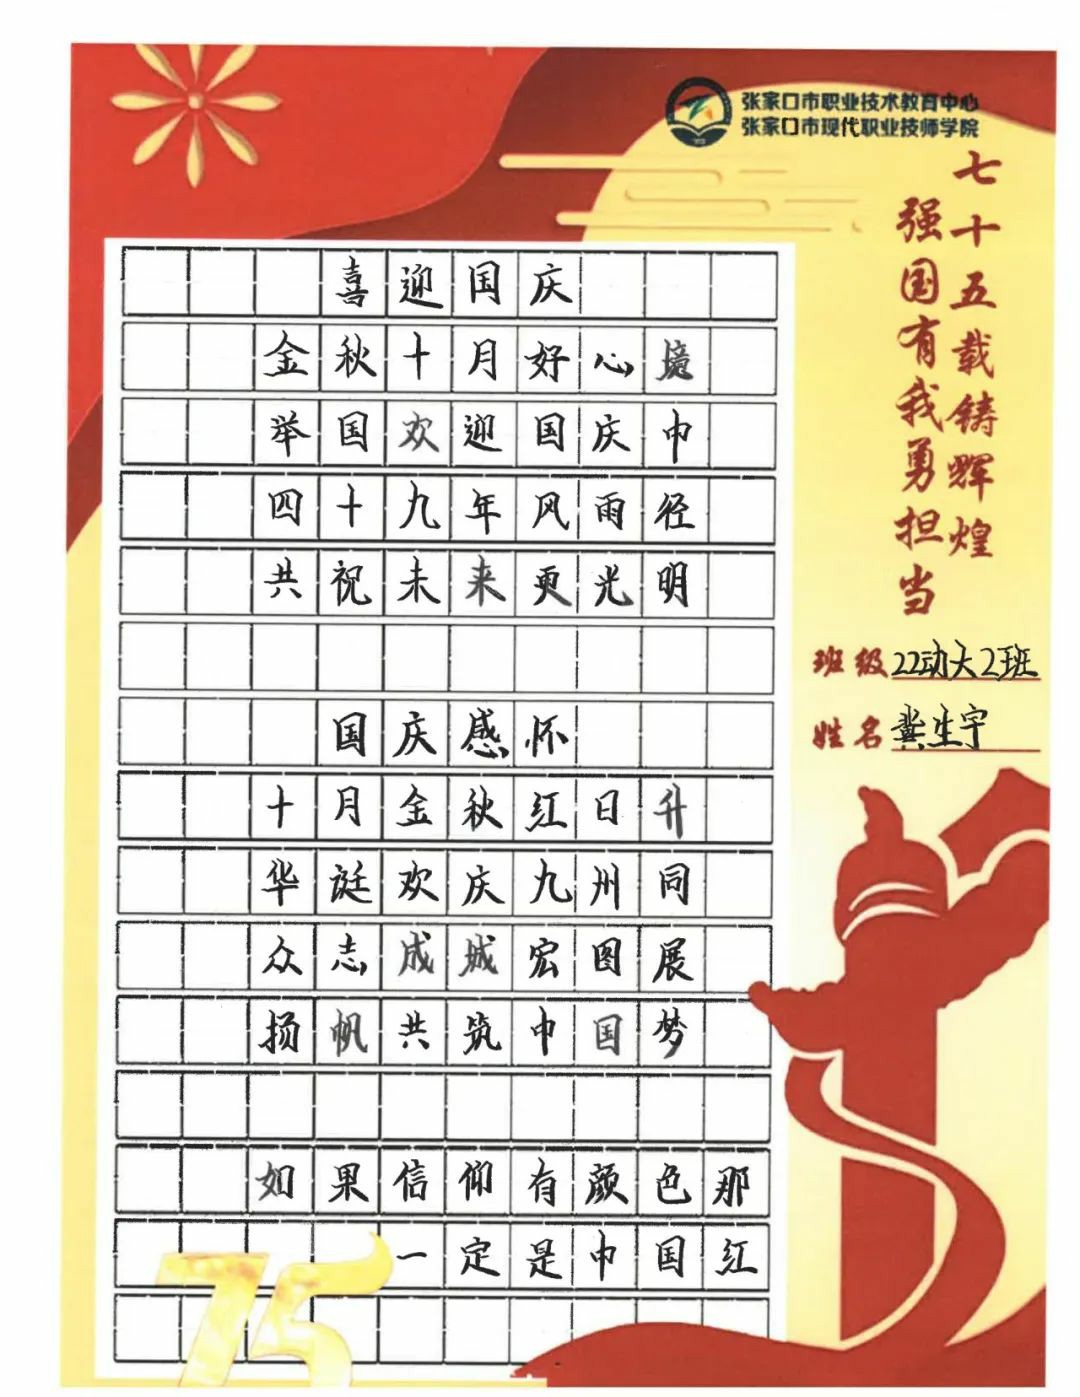 张家口市职业技术教育中心
张家口市现代职业技师学院
七十五载铸辉煌
强国有我勇担当
喜迎国庆
金秋十月好心境
举国欢迎国庆中
四十九年风雨径
共祝未来更光明
国庆感怀
十月金秋红日升
华诞欢庆九州同
众志成城宏图展
扬帆共筑中国梦
如果信仰有颜色那
一定是中国红
班级 22动大2班
姓名 龚生宇
75